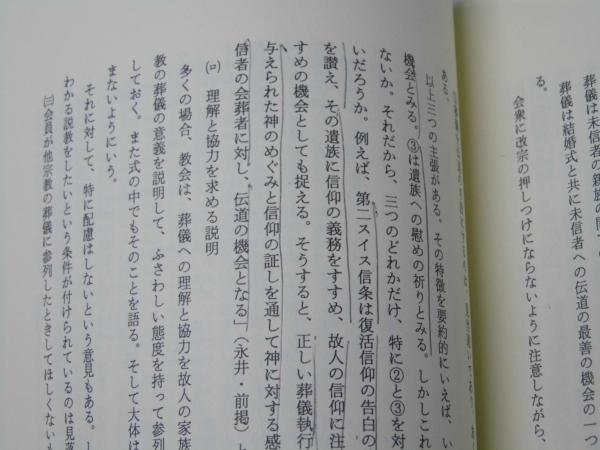 葬儀は未信者の親族の間で
葬儀は結婚式と共に未信者への伝道の最善の機会の一つ
る。
会衆に改宗の押しつけにならないように注意しながら、
ある。
以上三つの主張がある。その特徴を要約的にいえば、い
機会とみる。③は遺族への慰めの祈りとみる。しかしこれ
ないか。それだから、三つのどれかだけ、特に②と③を対
いだろうか。例えば、第二スイス信条は復活信仰の告白の
を讃え、その遺族に信仰の義務をすすめ、故人の信仰に注
すめの機会としても捉える。そうすると、正しい葬儀執行
与えられた神のめぐみと信仰の証しを通して神に対する感
信者の会葬者に対し、伝道の機会となる」(永井・前掲)
(ロ) 理解と協力を求める説明
多くの場合、教会は、葬儀への理解と協力を故人の家族
教の葬儀の意義を説明して、ふさわしい態度を持って参列
しておく。また式の中でもそのことを語る。そして大体は
まないようにいう。
それに対して、特に配慮はしないという意見もある。
わかる説教をしたいという条件が付けられているのは見落
㈢会員が他宗教の葬儀に参列したときしてほしくない